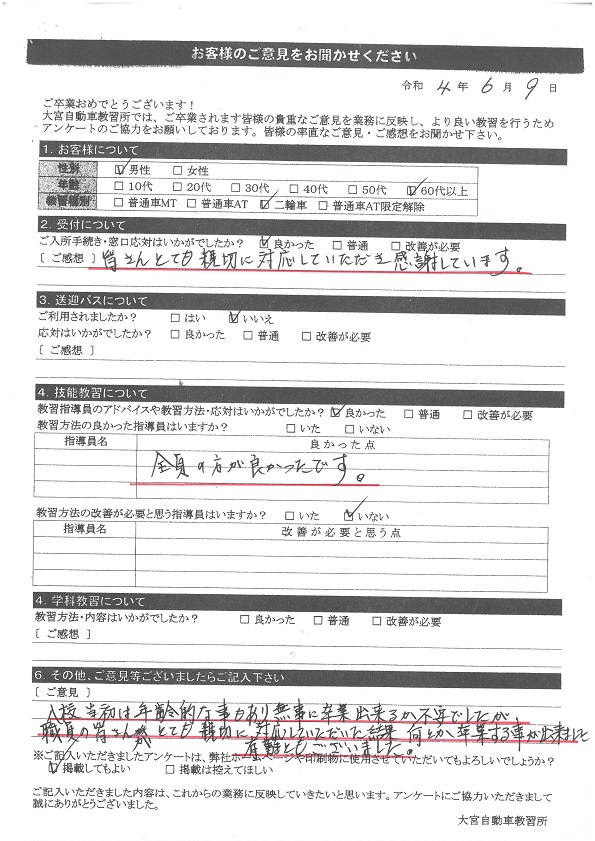 お客様のご意見をお聞かせください
令和 4 年 6 月 9 日
ご卒業おめでとうございます!
大宮自動車教習所では、ご卒業されます皆様の貴重なご意見を業務に反映し、より良い教習を行うため
アンケートのご協力をお願いしております。皆様の率直なご意見・ご感想をお聞かせ下さい。
1. お客様について
性別 ☑男性 □女性
年齢 □10代 □20代 □30代 □40代 □50代 ☑60代以上
教習種別 □普通車MT □普通車AT ☑二輪車 □普通車AT限定解除
2. 受付について
ご入所手続き・窓口応対はいかがでしたか? ☑良かった □普通 □改善が必要
〔 ご感想 〕皆さんとても親切に対応していただき感謝しています。
3. 送迎バスについて
ご利用されましたか? □はい ☑いいえ
応対はいかがでしたか? □良かった □普通 □改善が必要
〔 ご感想 〕
4. 技能教習について
教習指導員のアドバイスや教習方法・応対はいかがでしたか? ☑良かった □普通 □改善が必要
教習方法の良かった指導員はいますか? □いた □いない
指導員名 良かった点
全員の方が良かったです。
教習方法の改善が必要と思う指導員はいますか? □いた ☑いない
指導員名 改善が必要と思う点
4. 学科教習について
教習方法・内容はいかがでしたか? □良かった □普通 □改善が必要
〔 ご感想 〕
6. その他、ご意見等ございましたらご記入下さい
〔 ご意見 〕
入校当初は年齢的な事もあり無事に卒業出来るか不安でしたが
職員の皆さんがとても親切に対応していただいた結果 何とか卒業する事が出来まして
有難ともございました。
※ご記入いただきましたアンケートは、弊社ホームページや印刷物に使用させていただいてもよろしいでしょうか?
☑掲載してもよい □掲載は控えてほしい
ご記入いただきました内容は、これからの業務に反映していきたいと思います。アンケートにご協力いただきまして
誠にありがとうございました。
大宮自動車教習所